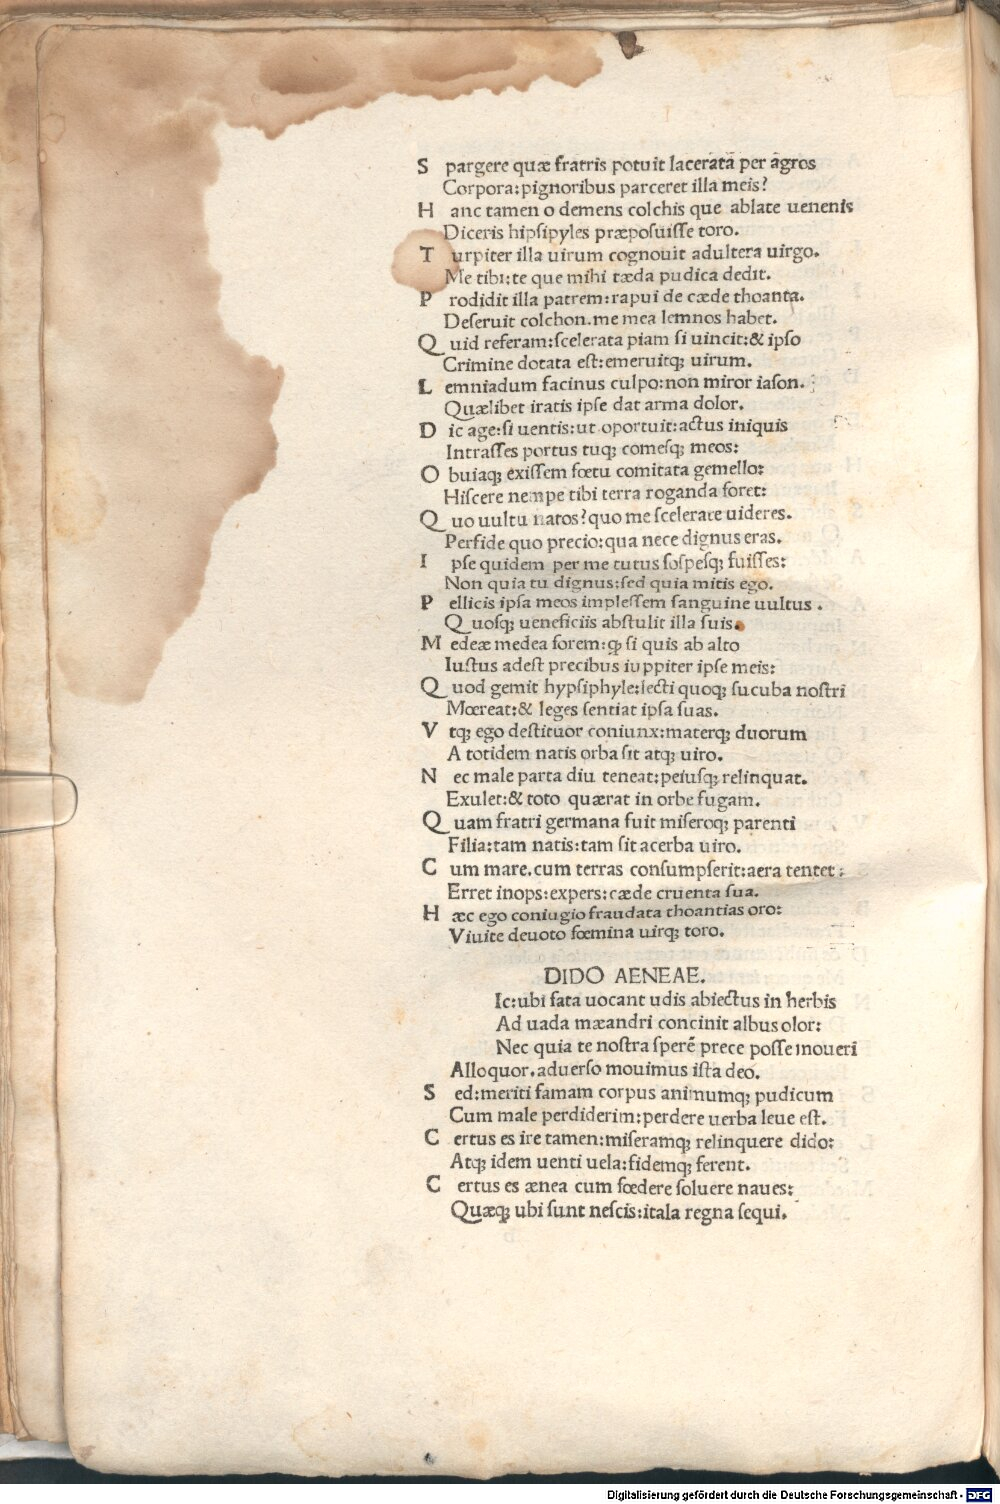 S pargere quæ fratris potuit laceratā per āgros
Corpora:pignoribus parceret illa meis?
H anc tamen o demens colchis que ablate uenenis
Diceris hipsipyles præposuisse toro.
T urpiter illa uirum cognouit adultera uirgo.
Me tibi:te que mihi tæda pudica dedit.
P rodidit illa patrem:rapui de cæde thoanta.
Deseruit colchon.me mea lemnos habet.
Q uid referam:scelerata piam si uincit:& ipso
Crimine dotata est:emeruitqȝ uirum.
L emniadum facinus culpo:non miror iason.
Quælibet iratis ipse dat arma dolor.
D ic age:si uentis:ut oportuit:actus iniquis
Intrasses portus tuqȝ comesqȝ meos:
O buiaqȝ exissem fœtu comitata gemello:
Hiscere nempe tibi terra roganda foret:
Q uo uultu natos?quo me scelerate uideres.
Perfide quo precio:qua nece dignus eras.
I pse quidem per me tutus sospesqȝ fuisses:
Non quia tu dignus:sed quia mitis ego.
P ellicis ipsa meos implessem sanguine uultus.
Q uosqȝ ueneficiis abstulit illa suis.
M edeæ medea forem:ꝙ si quis ab alto
Iustus adest precibus iuppiter ipse meis:
Q uod gemit hypsiphyle:lecti quoqȝ sucuba nostri
Mœreat:& leges sentiat ipsa suas.
V tqȝ ego destituor coniunx:materqȝ duorum
A totidem natis orba sit atqȝ uiro.
N ec male parta diu teneat:peiusqȝ relinquat.
Exulet:& toto quærat in orbe fugam.
Q uam fratri germana fuit miseroqȝ parenti
Filia:tam natis:tam sit acerba uiro.
C um mare.cum terras consumpserit:aera tentet:
Erret inops:expers:cæde cruenta sua.
H æc ego coniugio fraudata thoantias oro:
Viuite deuoto fœmina uirqȝ toro.
DIDO AENEAE.
Ic:ubi fata uocant udis abiectus in herbis
Ad uada mæandri concinit albus olor:
Nec quia te nostra sperē prece posse moueri
Alloquor.aduerso mouimus ista deo.
S ed:meriti famam corpus animumqȝ pudicum
Cum male perdiderim:perdere uerba leue est.
C ertus es ire tamen:miseramqȝ relinquere dido:
Atqȝ idem uenti uela:fidemqȝ ferent.
C ertus es ænea cum fœdere soluere naues:
Quæqȝ ubi sunt nescis:itala regna sequi.
Digitalisierung gefördert durch die Deutsche Forschungsgemeinschaft - DFG